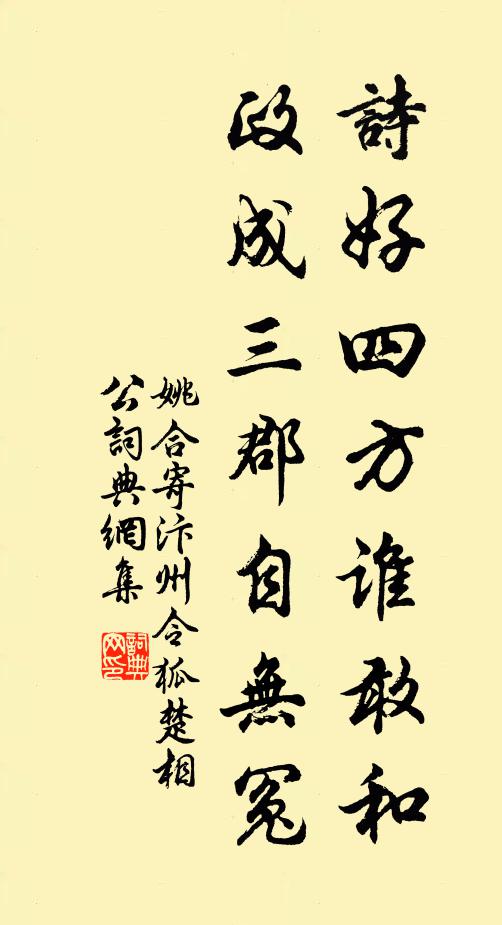 詩好四方誰敢和
政成三郡自無冤
姚合寄汴州令狐楚相
公詞典網集
詞典